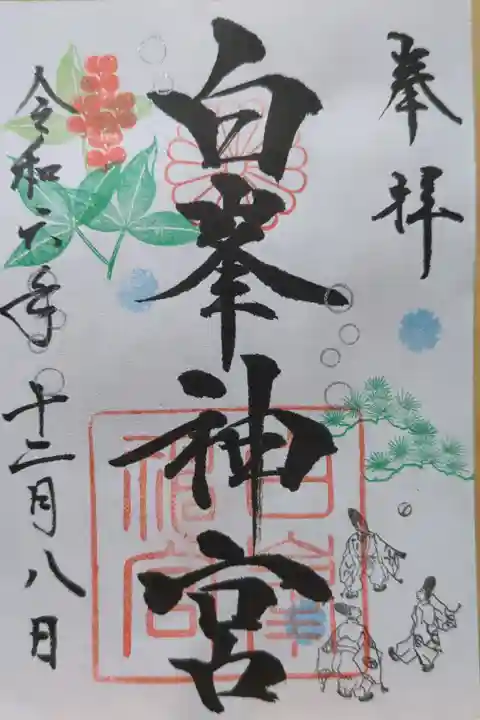 奉拝
白峯神宮
令和六年十二月八日
白峯
神宮